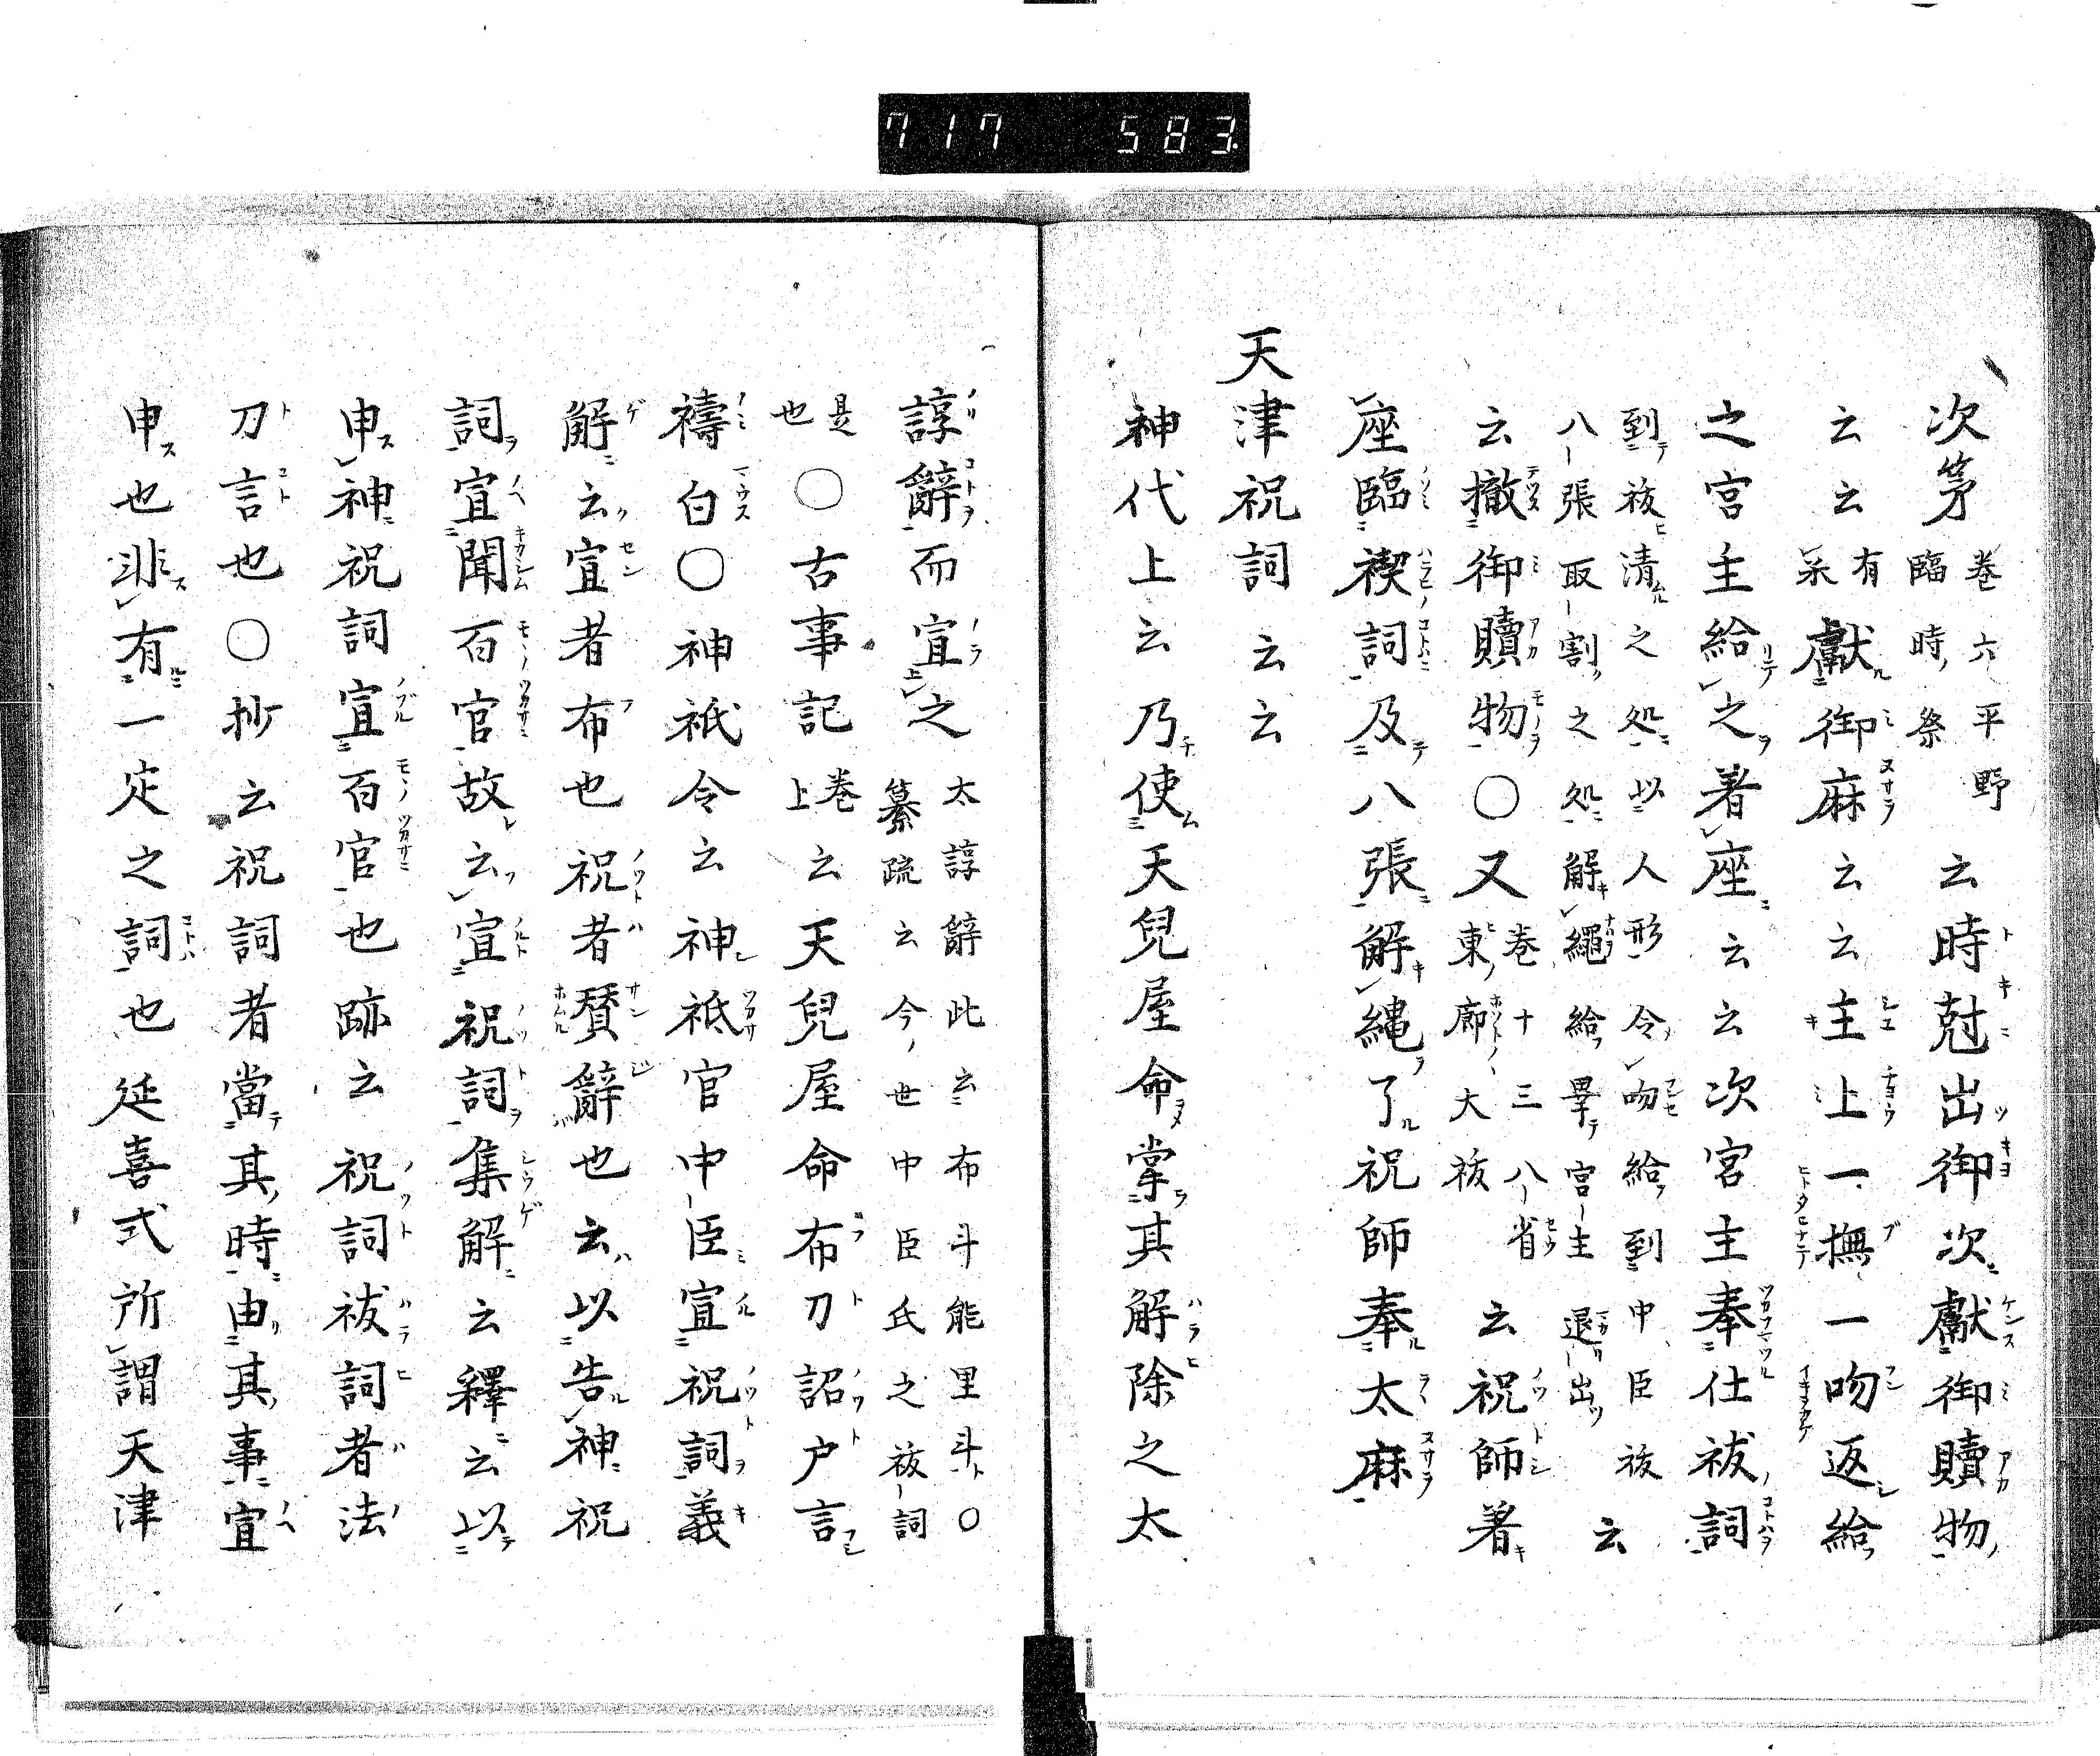 717 583
次第 卷六平野臨時祭 云時尅出御次獻御贖物
云云 有采 獻御麻云云主上一撫一吻返給
之宮主給之着座云云次宮主奉仕祓詞
到祓清之処以人形令吻給到中臣祓云
八張取割之処解繩給畢宮主退出
云撤御贖物○又 卷十三八省東廊大祓 云祝師着
座臨禊詞及八張解繩了祝師奉太麻
天津祝詞云云
神代上云乃使天兒屋命掌其解除之太
諄辭而宣之 太諄辭此云布斗能里斗○纂疏云今世中臣氏之祓詞
是也 ○古事記 卷上 云天兒屋命布刀詔户言
禱白○神祇令云神祇官中臣宣祝詞義
解云宣者布也祝者賛辭也云以告神祝
詞宣聞百官故云宣祝詞集解云釋云以
申神祝詞宣百官也跡云祝詞祓詞者法
刀言也○抄云祝詞者當其時由其事宣
申也非有一定之詞也延喜式所謂天津